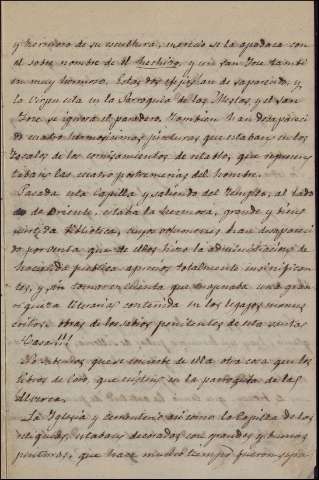 y hermoso de su escultura, mereció se la apodara con
el sobre nombre de el hechizo, y un San José tambi-
en muy hermoso. Estos dos efigies han desaparecido, y
la Virgen está en la Parroquia de los y el San
José se ignora el paradero. Tambien han desapareci-
do cuatro hermosisimas pinturas que estaban en los
zocalos de los cornisamentos de retablo, que represen-
taban las cuatro postrimerías del hombre.
Pasada esta Capilla y saliendo del Templo, al lado
de Oriente, estaba la hermosa, grande y bien
surtida Biblioteca, cuyos volumenes han desapareci-
do por venta que de ellos hizo la administracion de
hacienda publica a precios totalmente insignifican-
tes, y sin tomar en cuenta que enagenaba una gran
riqueza literaria contenida en los legajos manus-
critos, obras de los sabios penitentes de esta santa
Casa!!!
No sabemos que se conserve de ella otra cosa que los
libros de Coro, que existen en la parroquia de las
Alberca.
La Iglesia y cementerio así como la Capilla de los
estaban decorados con grandes y buenas
pinturas, que hace mucho tiempo fueron